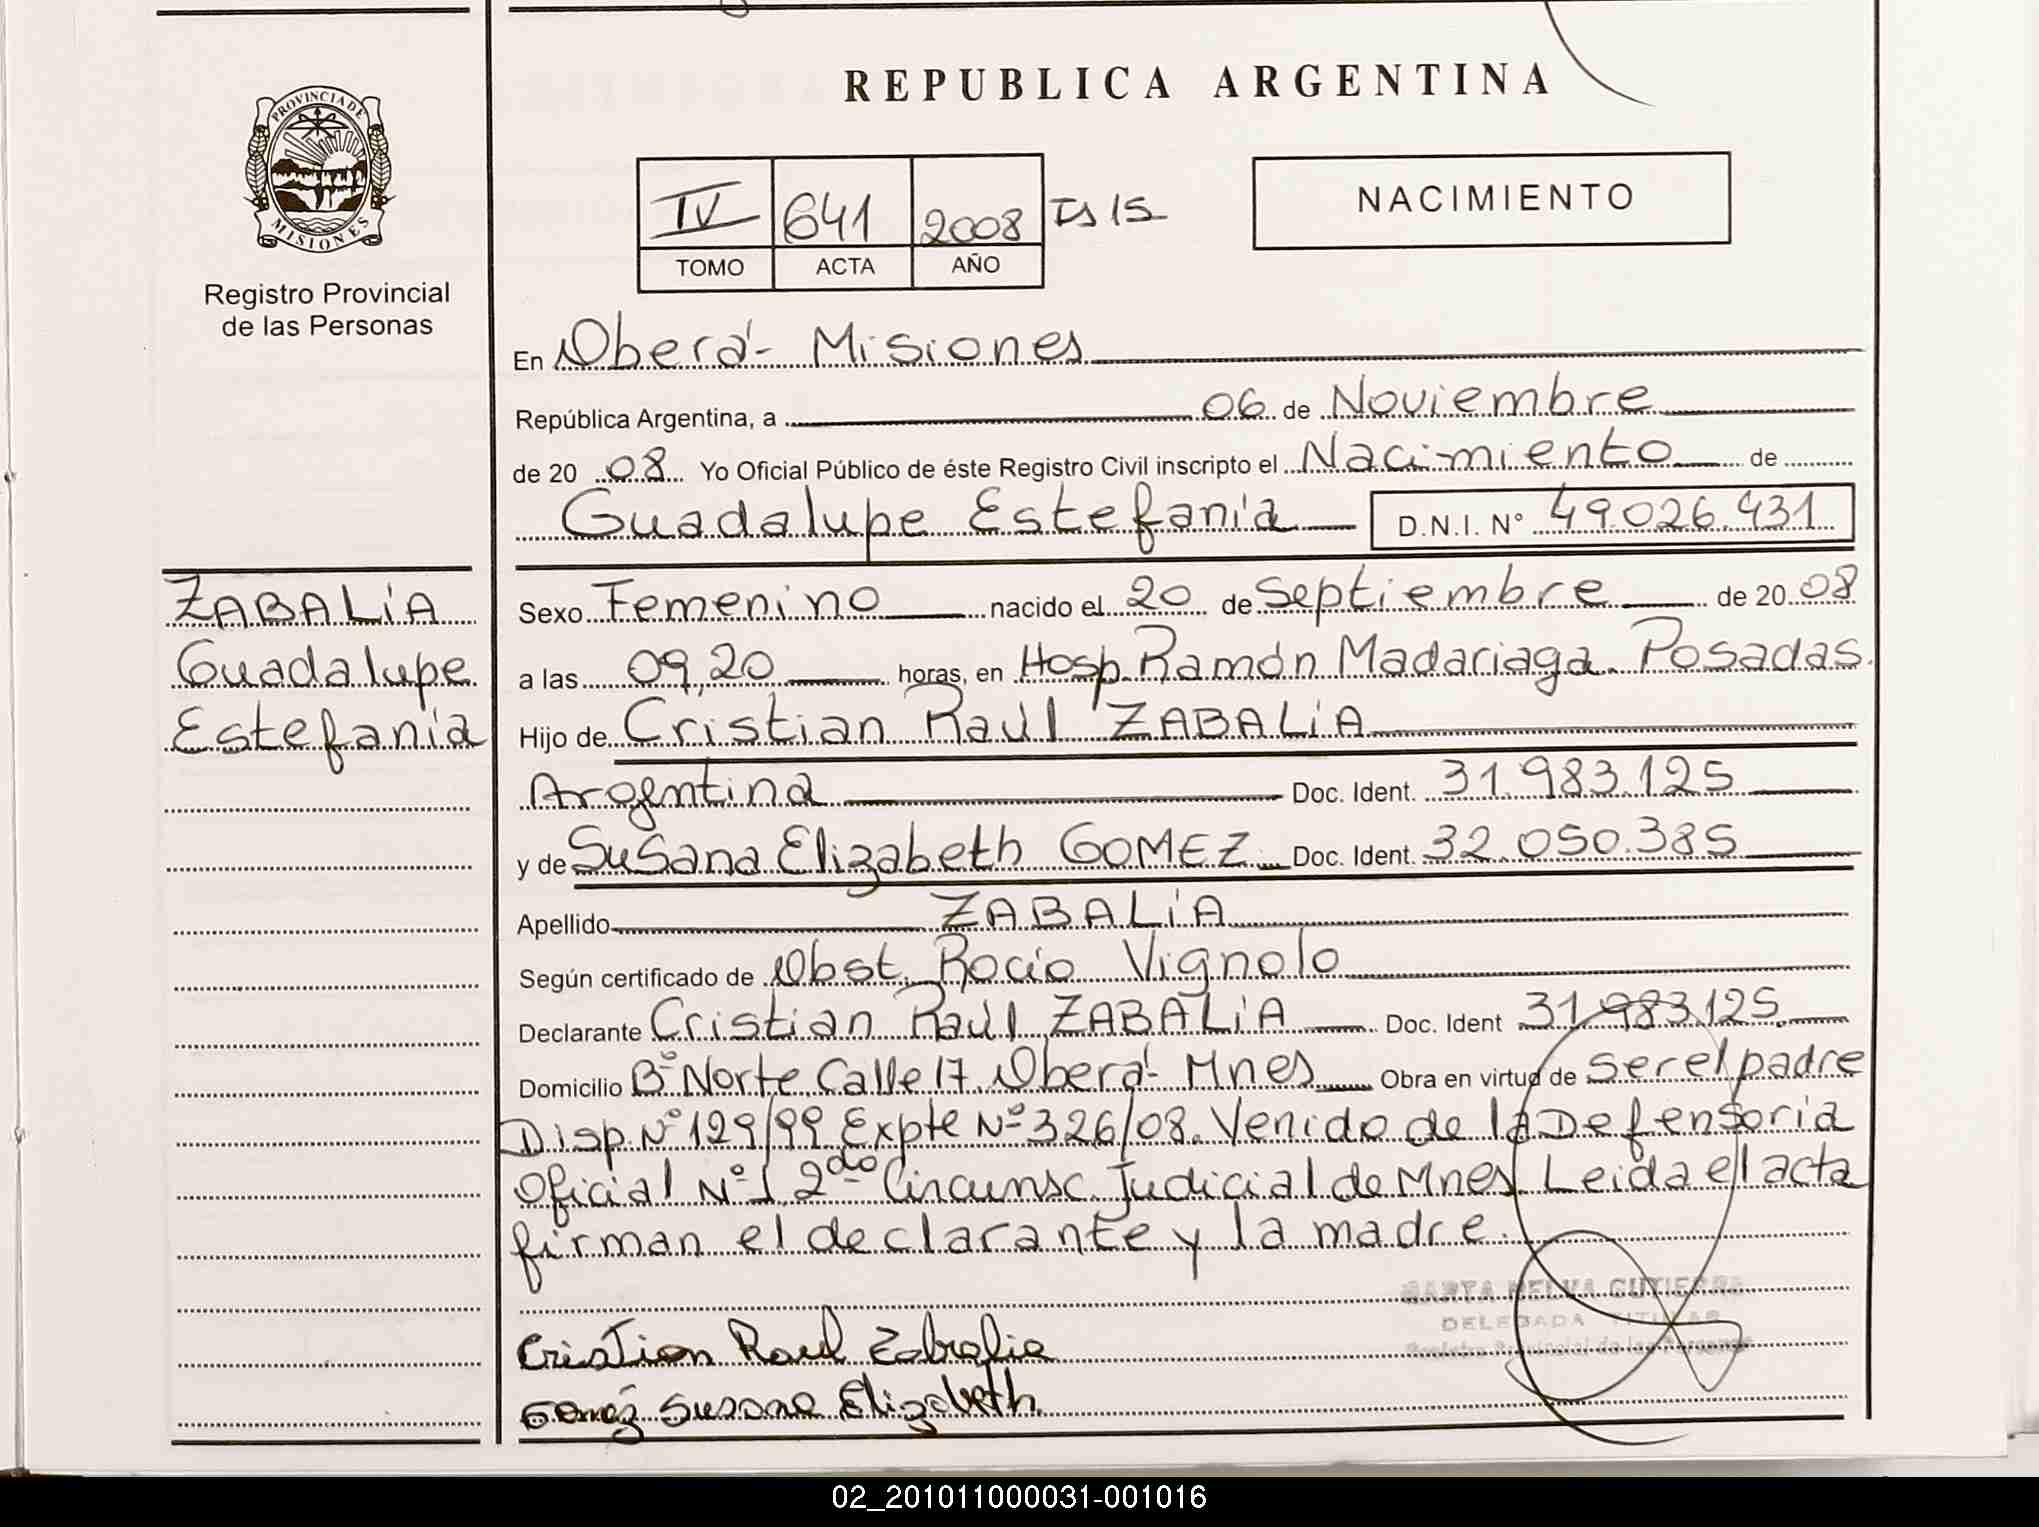 REPUBLICA ARGENTINA
PROVINCIA DE
MISIONES
Registro Provincial
de las Personas
IV 641 2008 Ts 15
TOMO ACTA AÑO
NACIMIENTO
En Oberá - Misiones
República Argentina, a 06 de Noviembre
de 20 08 Yo Oficial Público de éste Registro Civil inscripto el Nacimiento de
Guadalupe Estefanía D.N.I. N° 49.026.431
ZABALíA
Guadalupe
Estefanía
Sexo Femenino nacido el 20 de Septiembre de 20 08
a las 09,20 horas, en Hosp. Ramón Madariaga. Posadas.
Hijo de Cristian Raúl ZABALíA
Argentina Doc. Ident. 31.983.125
y de Susana Elizabeth GOMEZ Doc. Ident. 32.050.385
Apellido ZABALíA
Según certificado de Obst. Rocío Vignolo
Declarante Cristian Raúl ZABALíA Doc. Ident 31.983.125.
Domicilio B° Norte Calle 17. Oberá - Mnes Obra en virtud de ser el padre
Disp. N° 129/99 Expte N° 326/08. Venido de la Defensoria
Oficial N° 1 2do Circunsc. Judicial de Mnes. Leida el acta
firman el declarante y la madre.
DELEGADA TITULAR
Registro Provincial de las Personas
Cristian Raul Zabalia
Gomez Susana Elizabeth
02_201011000031-001016